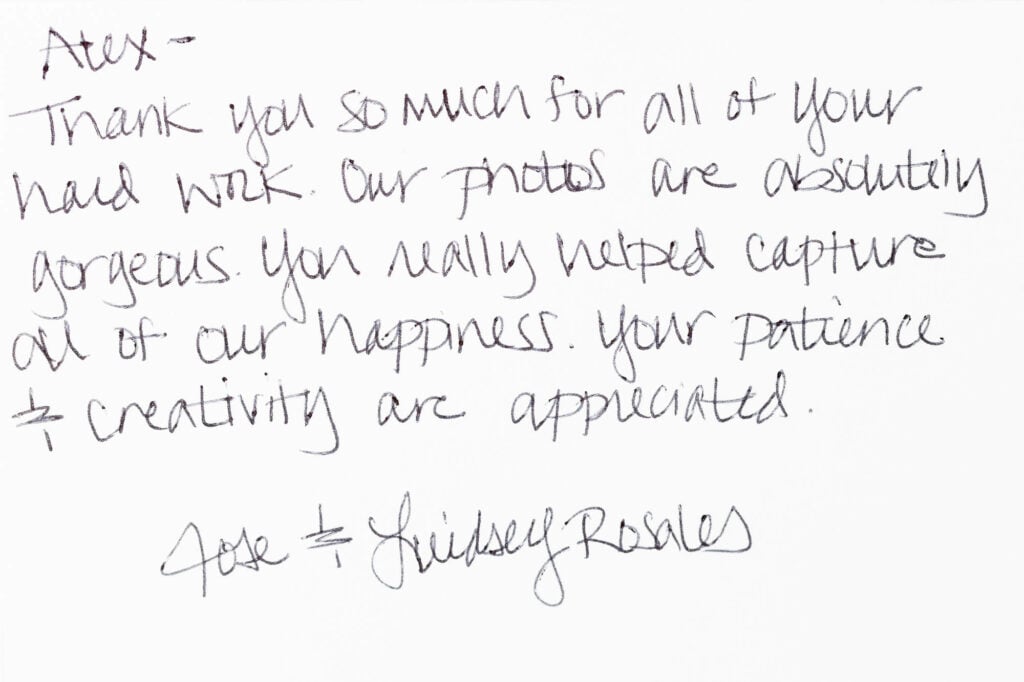 Alex -
Thank you so much for all of your
hard work. Our photos are absolutely
gorgeous. You really helped capture
all of our happiness. Your patience
& creativity are appreciated.
Jose & Lindsey Rosales